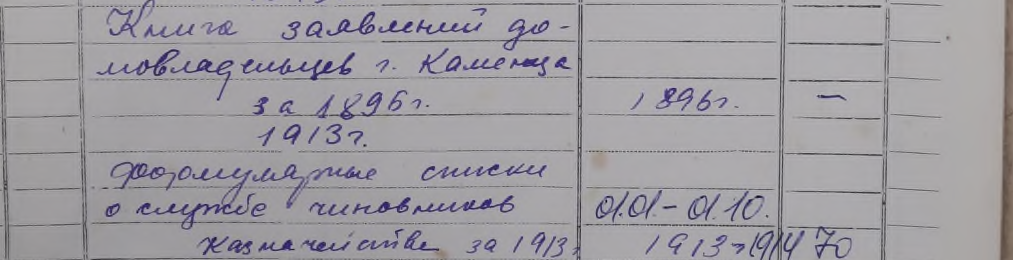 Книга заявлений до-
мовладельцев г. Каменца
за 1896г. 1896г. —
1913г.
Формулярные списки
о службе чиновников 01.01-01.10.
Казначейства за 1913г 1913г 1914 70